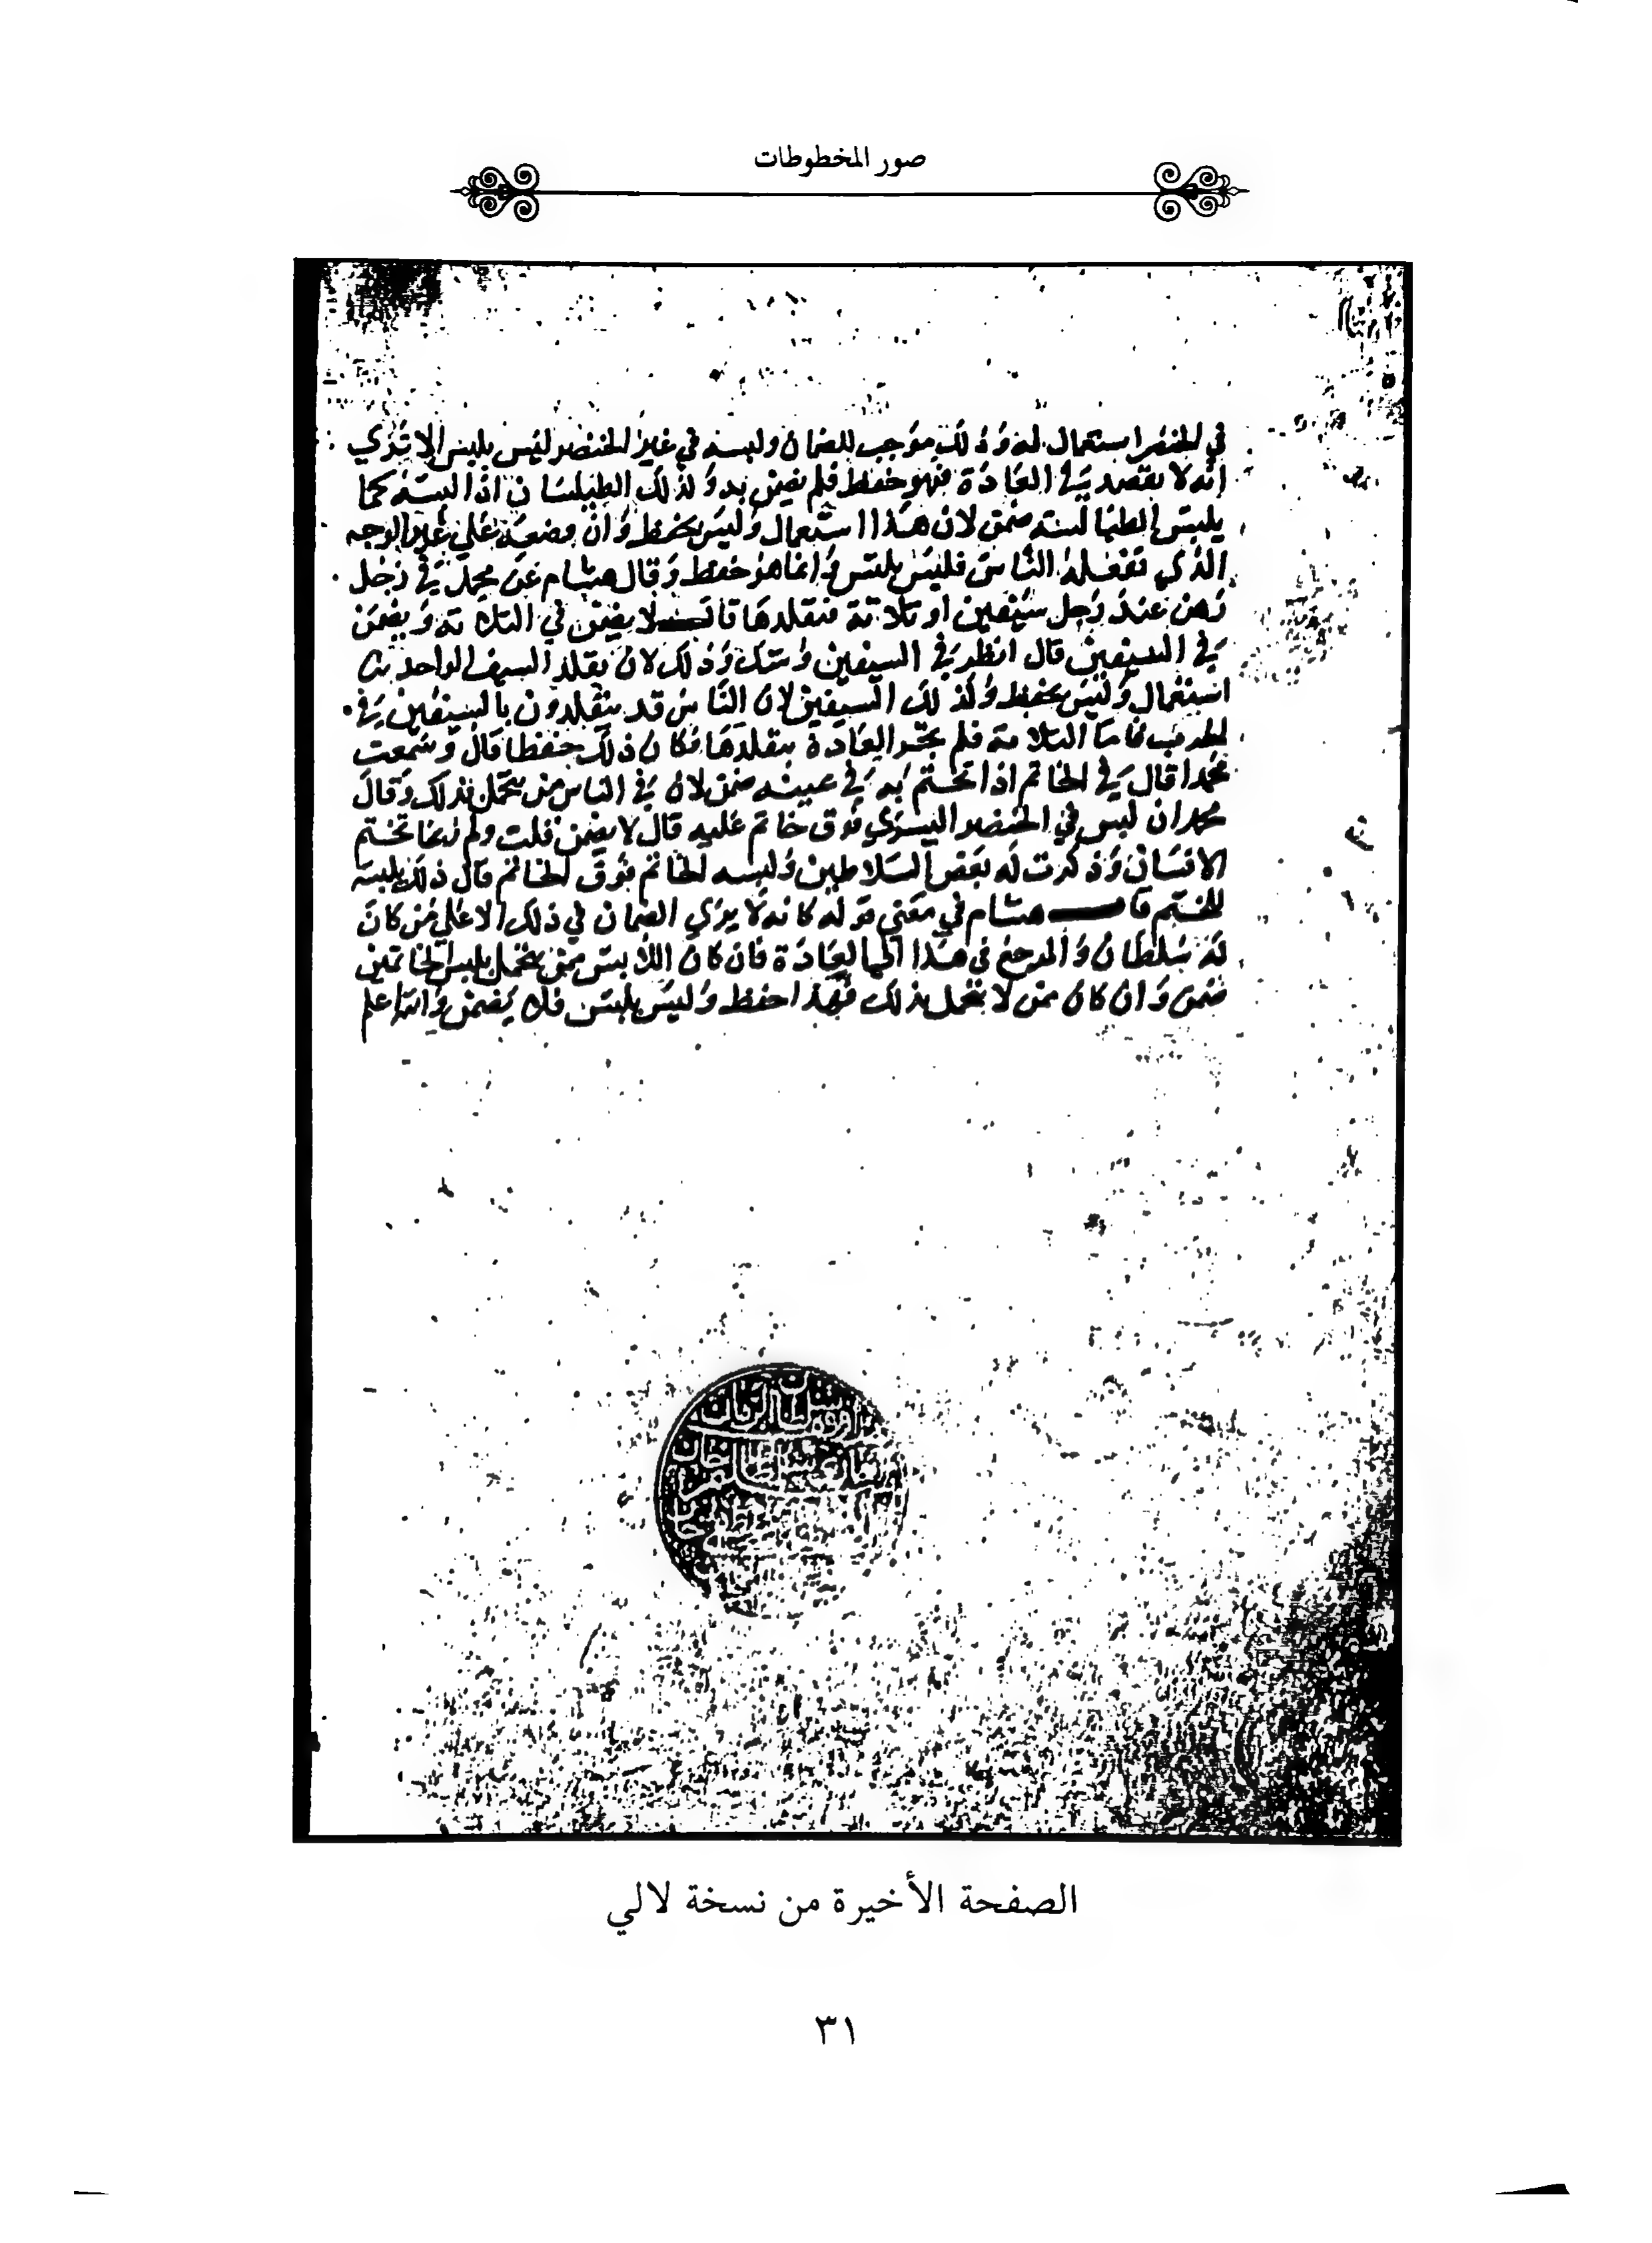 صور المخطوطات
في الخنصر استعمال له وذلك موجب للضمان ولبسه في غير الخنصر ليس بلبس الا تري
انه لا يقصد في العادة فهو حفظ فلم يضمن به وكذلك الطيلسان اذا لبسه كما
يلبس الطيالسة ضمن لان هذا استعمال وليس بحفظ وان وضعه علي غير الوجه
الذي تفعله الناس فليس بلبس وانما هو حفظ وقال هشام عن محمد في رجل
رهن عند رجل سيفين او ثلاثة فتقلدها قال لا يضمن في الثلاثة ويضمن
في السيفين قال انظر في السيفين وشك وذلك لان تقلد السيف الواحد
استعمال وليس بحفظ وكذلك السيفين لان الناس قد يتقلدون بالسيفين في
الحرب فاما الثلاثة فلم تجر العادة بتقلدها فكان ذلك حفظا قال وسمعت
محمدا قال في الخاتم اذا تختم به في ضمن لان في الناس من يتجمل بذلك وقال
محمد ان لبس في الخنصر اليسري فوق خاتم عليه قال لا يضمن قلت ولم ربما تختم
الانسان وذكرت له بعض السلاطين ولبسه الخاتم فوق الخاتم قال ذلك يلبسه
للختم قال هشام في معني قوله كانه لا يري الضمان في ذلك الا علي من كان
له سلطان والمرجع في هذا الي العادة فان كان اللابس ممن يتجمل بلبس الخاتمين
ضمن وان كان ممن لا يتجمل بذلك فهذا حفظ وليس بلبس فلا يضمن والله اعلم
الصفحة الأخيرة من نسخة لالي
٣١